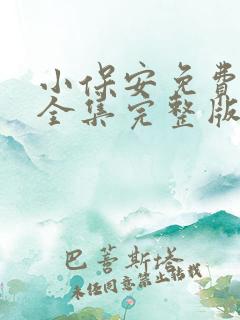 小保安免费
全集完整版
巴菩斯塔
未经同意禁止转载